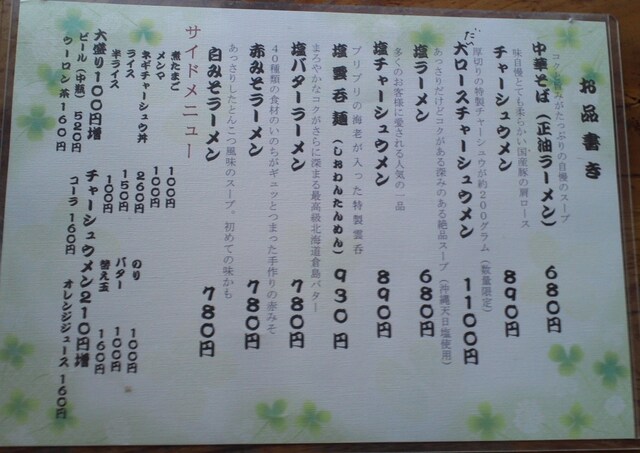 お品書き
コクと旨みがたっぷりの自慢のスープ
中華そば（正油ラーメン） 680円
味自慢とても柔らかい国産豚の肩ロース
チャーシュウメン 890円
厚切りの特製チャーシュウが約200グラム（数量限定）
大ロースチャーシュウメン 1100円
あっさりだけどコクがある深みのある絶品スープ（沖縄天日塩使用）
塩ラーメン 680円
多くのお客様に愛される人気の一品
塩チャーシュウメン 890円
プリプリの海老が入った特製雲呑
塩雲呑麺（しおわんたんめん） 930円
まろやかなコクがさらに深まる最高級北海道倉島バター
塩バターラーメン 780円
40種類の食材のいのちがギュッとつまった手作りの赤みそ
赤みそラーメン 780円
あっさりしたとんこつ風味のスープ。初めての味かも
白みそラーメン 780円
サイドメニュー
煮たまご 100円
メンマ 100円
ネギチャーシュウ丼 260円
ライス 150円
半ライス 100円
のり 100円
バター 100円
替え玉 160円
大盛り100円増 チャーシュウメン210円増
ビール（中瓶）520円 コーラ 160円 オレンジジュース 160円
ウーロン茶160円